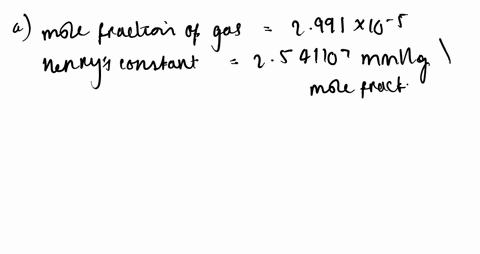 a) mole fraction of gas = 2.991 × 10-5
Henry's constant = 2.541107 mmHg \
mole fract.